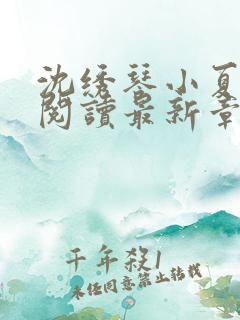 沈绣琴小夏
閱讀最新章
千年殺1
未经同意禁止转载